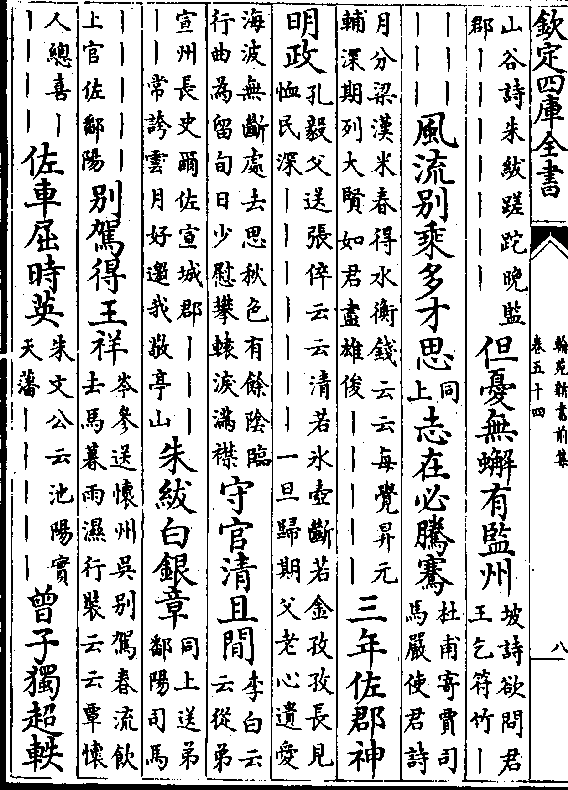 欽定四庫全書
翰苑新書前集
卷五十四
八
山谷詩朱紱蹉跎晩監
郡丨丨丨丨丨丨丨
但憂無蠏有監州
坡詩欲問君
王乞符竹丨
丨丨丨丨
丨丨丨丨
風流別乘多才思
同
上
志在必騰騫
杜甫寄賈司
馬嚴使君詩
月分梁漢米春得水衡錢云云每覺昇元
輔深期列大賢如君盡雄俊丨丨丨丨丨
三年佐郡神
明政
孔毅父送張倅云云清若氷壺斷若金孜孜長見
恤民深丨丨丨丨丨丨丨一旦歸期父老心遺愛
海波無斷處去思秋色有餘陰臨
行曲為留旬日少慰攀轅淚滿襟
守官清且閒
李白云
云從弟
宣州長史爾佐宣城郡丨丨丨
丨丨常誇雲月好邀我敬亭山
朱紱白銀章
同上送弟
鄱陽司馬
丨丨丨丨丨
上官佐鄱陽
別駕得王祥
岑參送懷州吳別駕春流飲
去馬暮雨濕行裝云云覃懷
人總喜丨
丨丨丨丨
佐車屈時英
朱文公云池陽實
天藩丨丨丨丨丨
曾子獨超軼